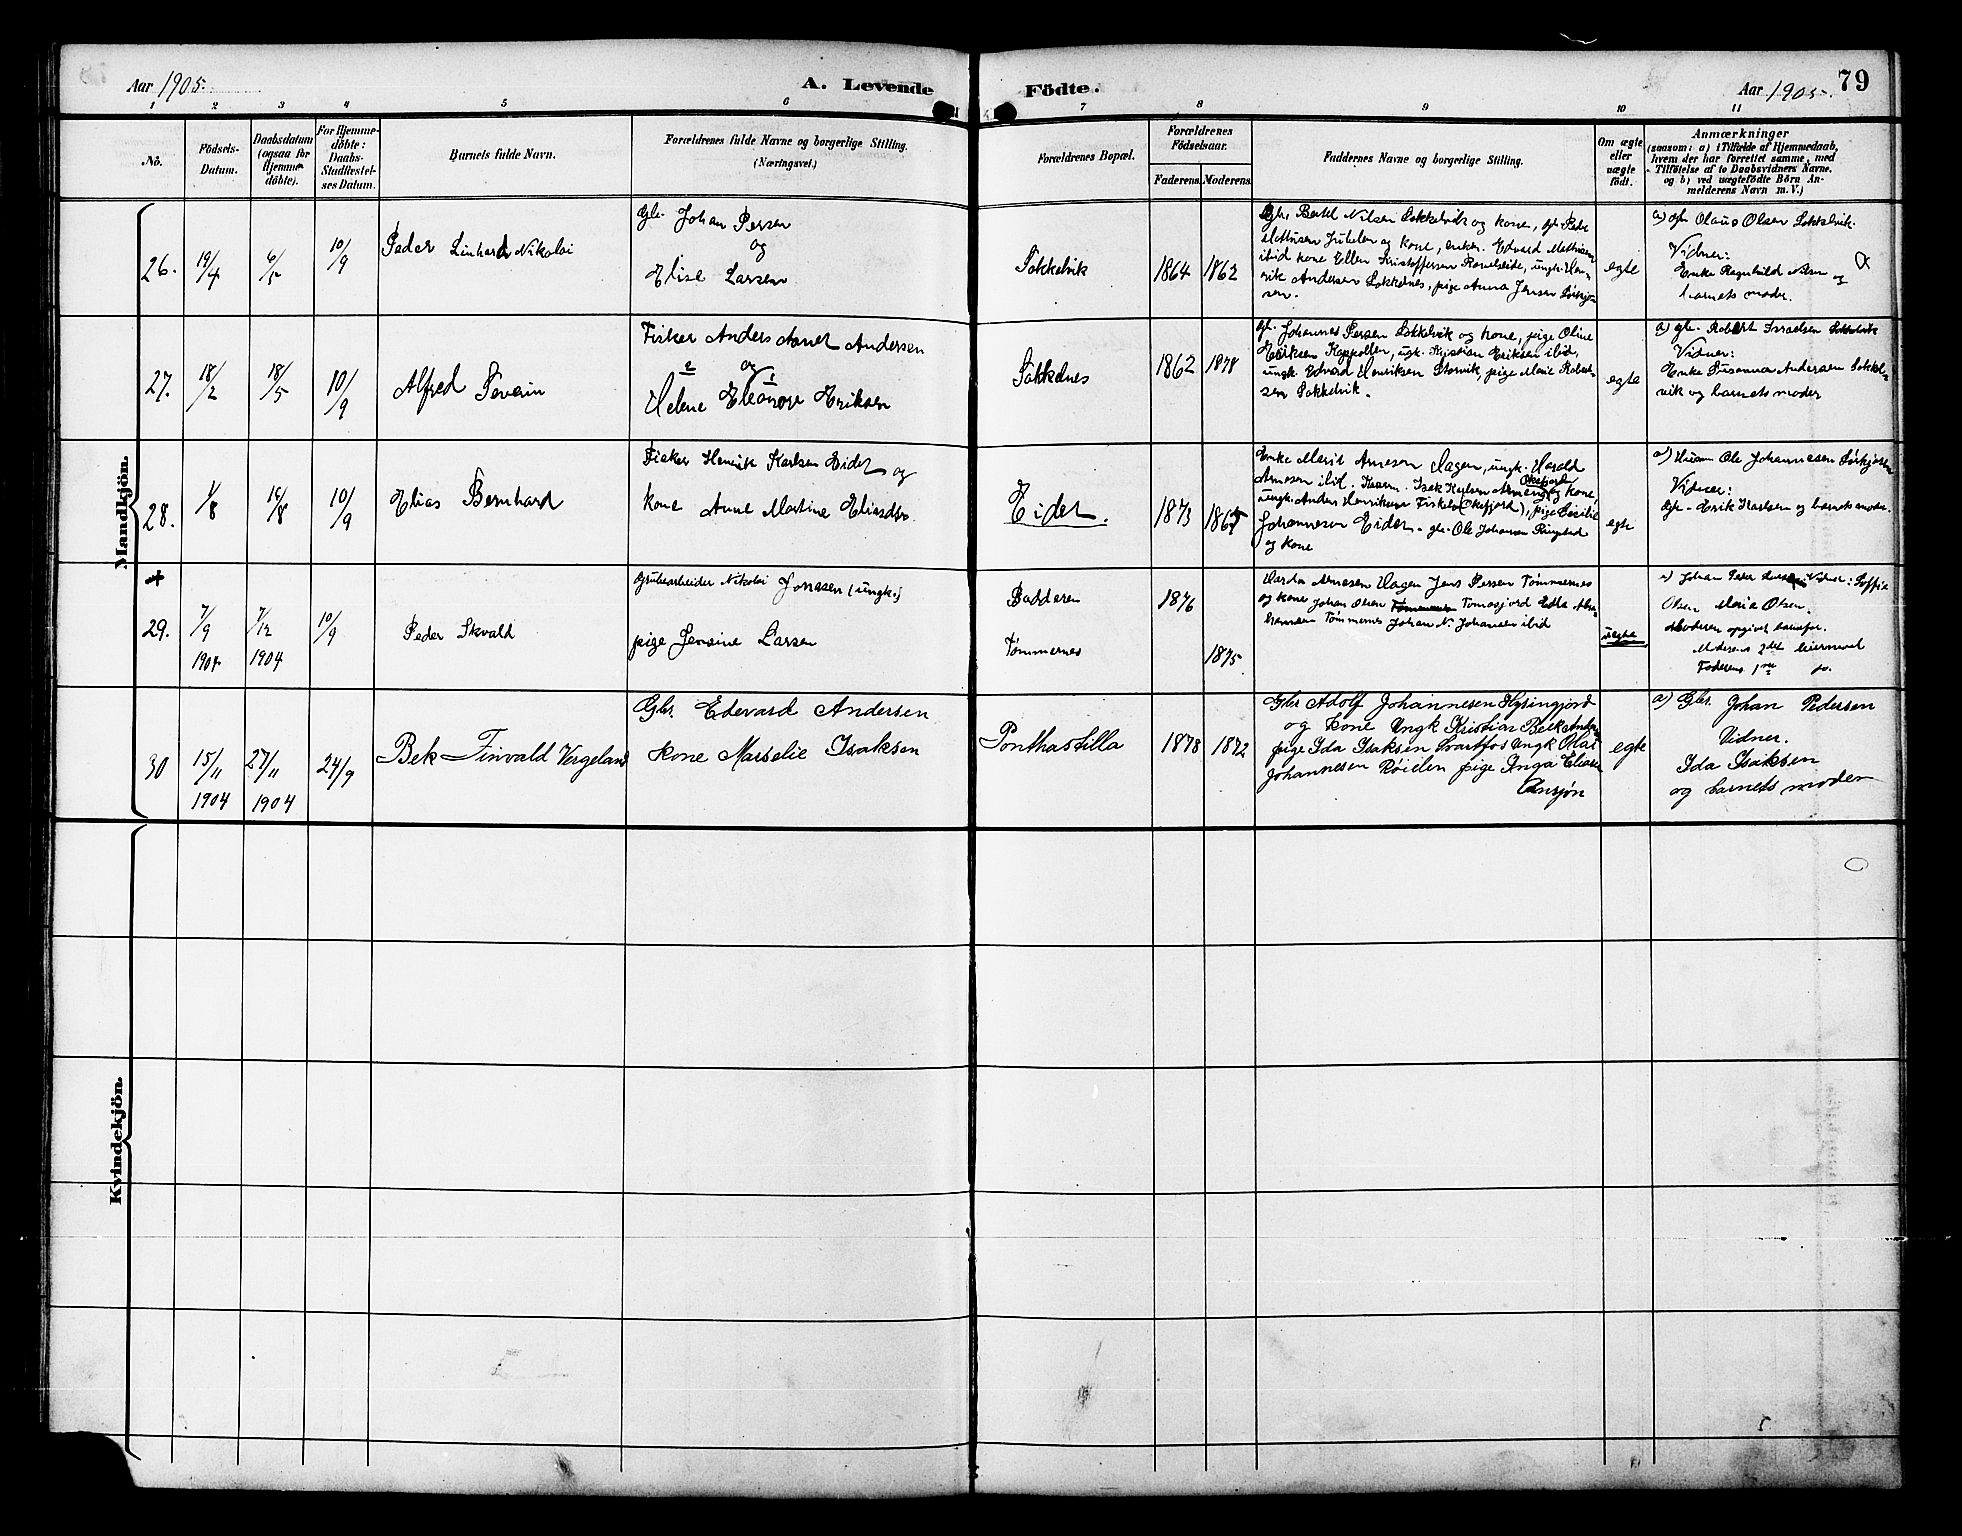 Aar 1905.
A. Levende
Födte.
Aar 1905.
79
1 2 3 4 5 6 7 8 9 10 11
No.
Födsels-
Datum.
Daabsdatum
(ogsaa for
Hjemme-
döbte).
For Hjemme-
döbte:
Daabs-
Stadfæstel-
ses Datum.
Barnets fulde Navn.
Forældrenes fulde Navne og borgerlige Stilling.
(Næringsvei.)
Forældrenes Bopæl.
Forældrenes
Födselsaar.
Faderens. Moderens.
Faddernes Navne og borgerlige Stilling.
Om ægte
eller
uægte
födt.
Anmærkninger
(saasom: a) i Tilfælde af Hjemmedaab,
hvem der har forrettet samme, med
Tilföielse af to Daabsvidners Navne.
og b) ved uægtefödte Börn An-
melderens Navn m. V.)
Mandkjön.
26.
19/4
6/5
10/9
Peder Linhard Nikolai
Gbr. Johan Persen
og
Elise Larsen
Sokkelvik
1864 1862
Gbr. Bertel Nilsen Sokkelvik og kone, gbr. Peder
ibid kone Ellen Kristoffersen
rik Andersen Sokkelnes, pige Anna Jensen
sen.
egte
a) gbr Olaus Olsen Sokkelvik.
Vidner:
Enke Ragnhild Nilsen og
barnets moder.
27.
18/2
18/5
10/9
Alfred Severin
Fisker Anders Andersen
2 og 1
Helene Eleonore Eriksen
Sokkelnes
1862 1878
gbr. Johannes Persen Sokkelvik og kone, pige Oline
Eriksen Kappollen, ungk. Kristian Eriksen ibid,
ungk. Edvard Henriksen Storvik, pige Marie Robert-
sen Sokkelvik.
egte
a) gbr. Robert Israelsen Sokkelvik
Vidner:
Enke Susanna Andersen Sokkel-
vik og barnets moder
28.
1/8
16/8
10/9
Elias Bernhard
Fisker Henrik Karlsen Eidet og
kone Anne Martine Eliasdtr.
Eidet.
1873 1865
Enke Marit Arnesen Hagen, ungk. Harald
Arnesen ibid. Isak Karlsen og kone,
ungk. Anders Henriksen Fiskeles (Oksfjord), pige Cecilie
Johannesen Eidet - gbr. Ole Johansen Ringstad
og kone
egte
a) Ole Johannesen Sörkjosen
Vidner:
Gbr. Erik Karlsen og barnets moder.
29.
7/9
1904
7/12
1904
10/9
Peder Skvald
Grubearbeider Nikolai Jonasen (ungk.)
pige Jensine Larsen
Badderen
Tömmernes
1876
1875
Arnesen Hagen Jens Persen Tömmernes
og kone Johan Olsen Tömmernes Tomasjord Edla Abra-
hamsen Tömmernes Johan N. Johansen ibid
uegte
a) Johan Peder Vidner: Soffie
Olsen Maria Olsen.
Moderen opgivet barnefar.
Moderens 2det leiermaal
Faderens 1ste do.
30
15/11
1904
27/11
1904
24/9
Bek Finvald Vergeland
Gbr. Edevard Andersen
kone Marselie Isaksen
Ponthastilla
1878 1872
Gbr Adolf Johannesen Kysingjord
og kone Ungk Kristian Beck
pige Ida Isaksen Svartfos Ungk Olai
Johannesen Röielen pige Inga Eliasen
egte
a) Gbr. Johan Pedersen
Vidner.
Ida Isaksen
og barnets moder
Kvindekjön.